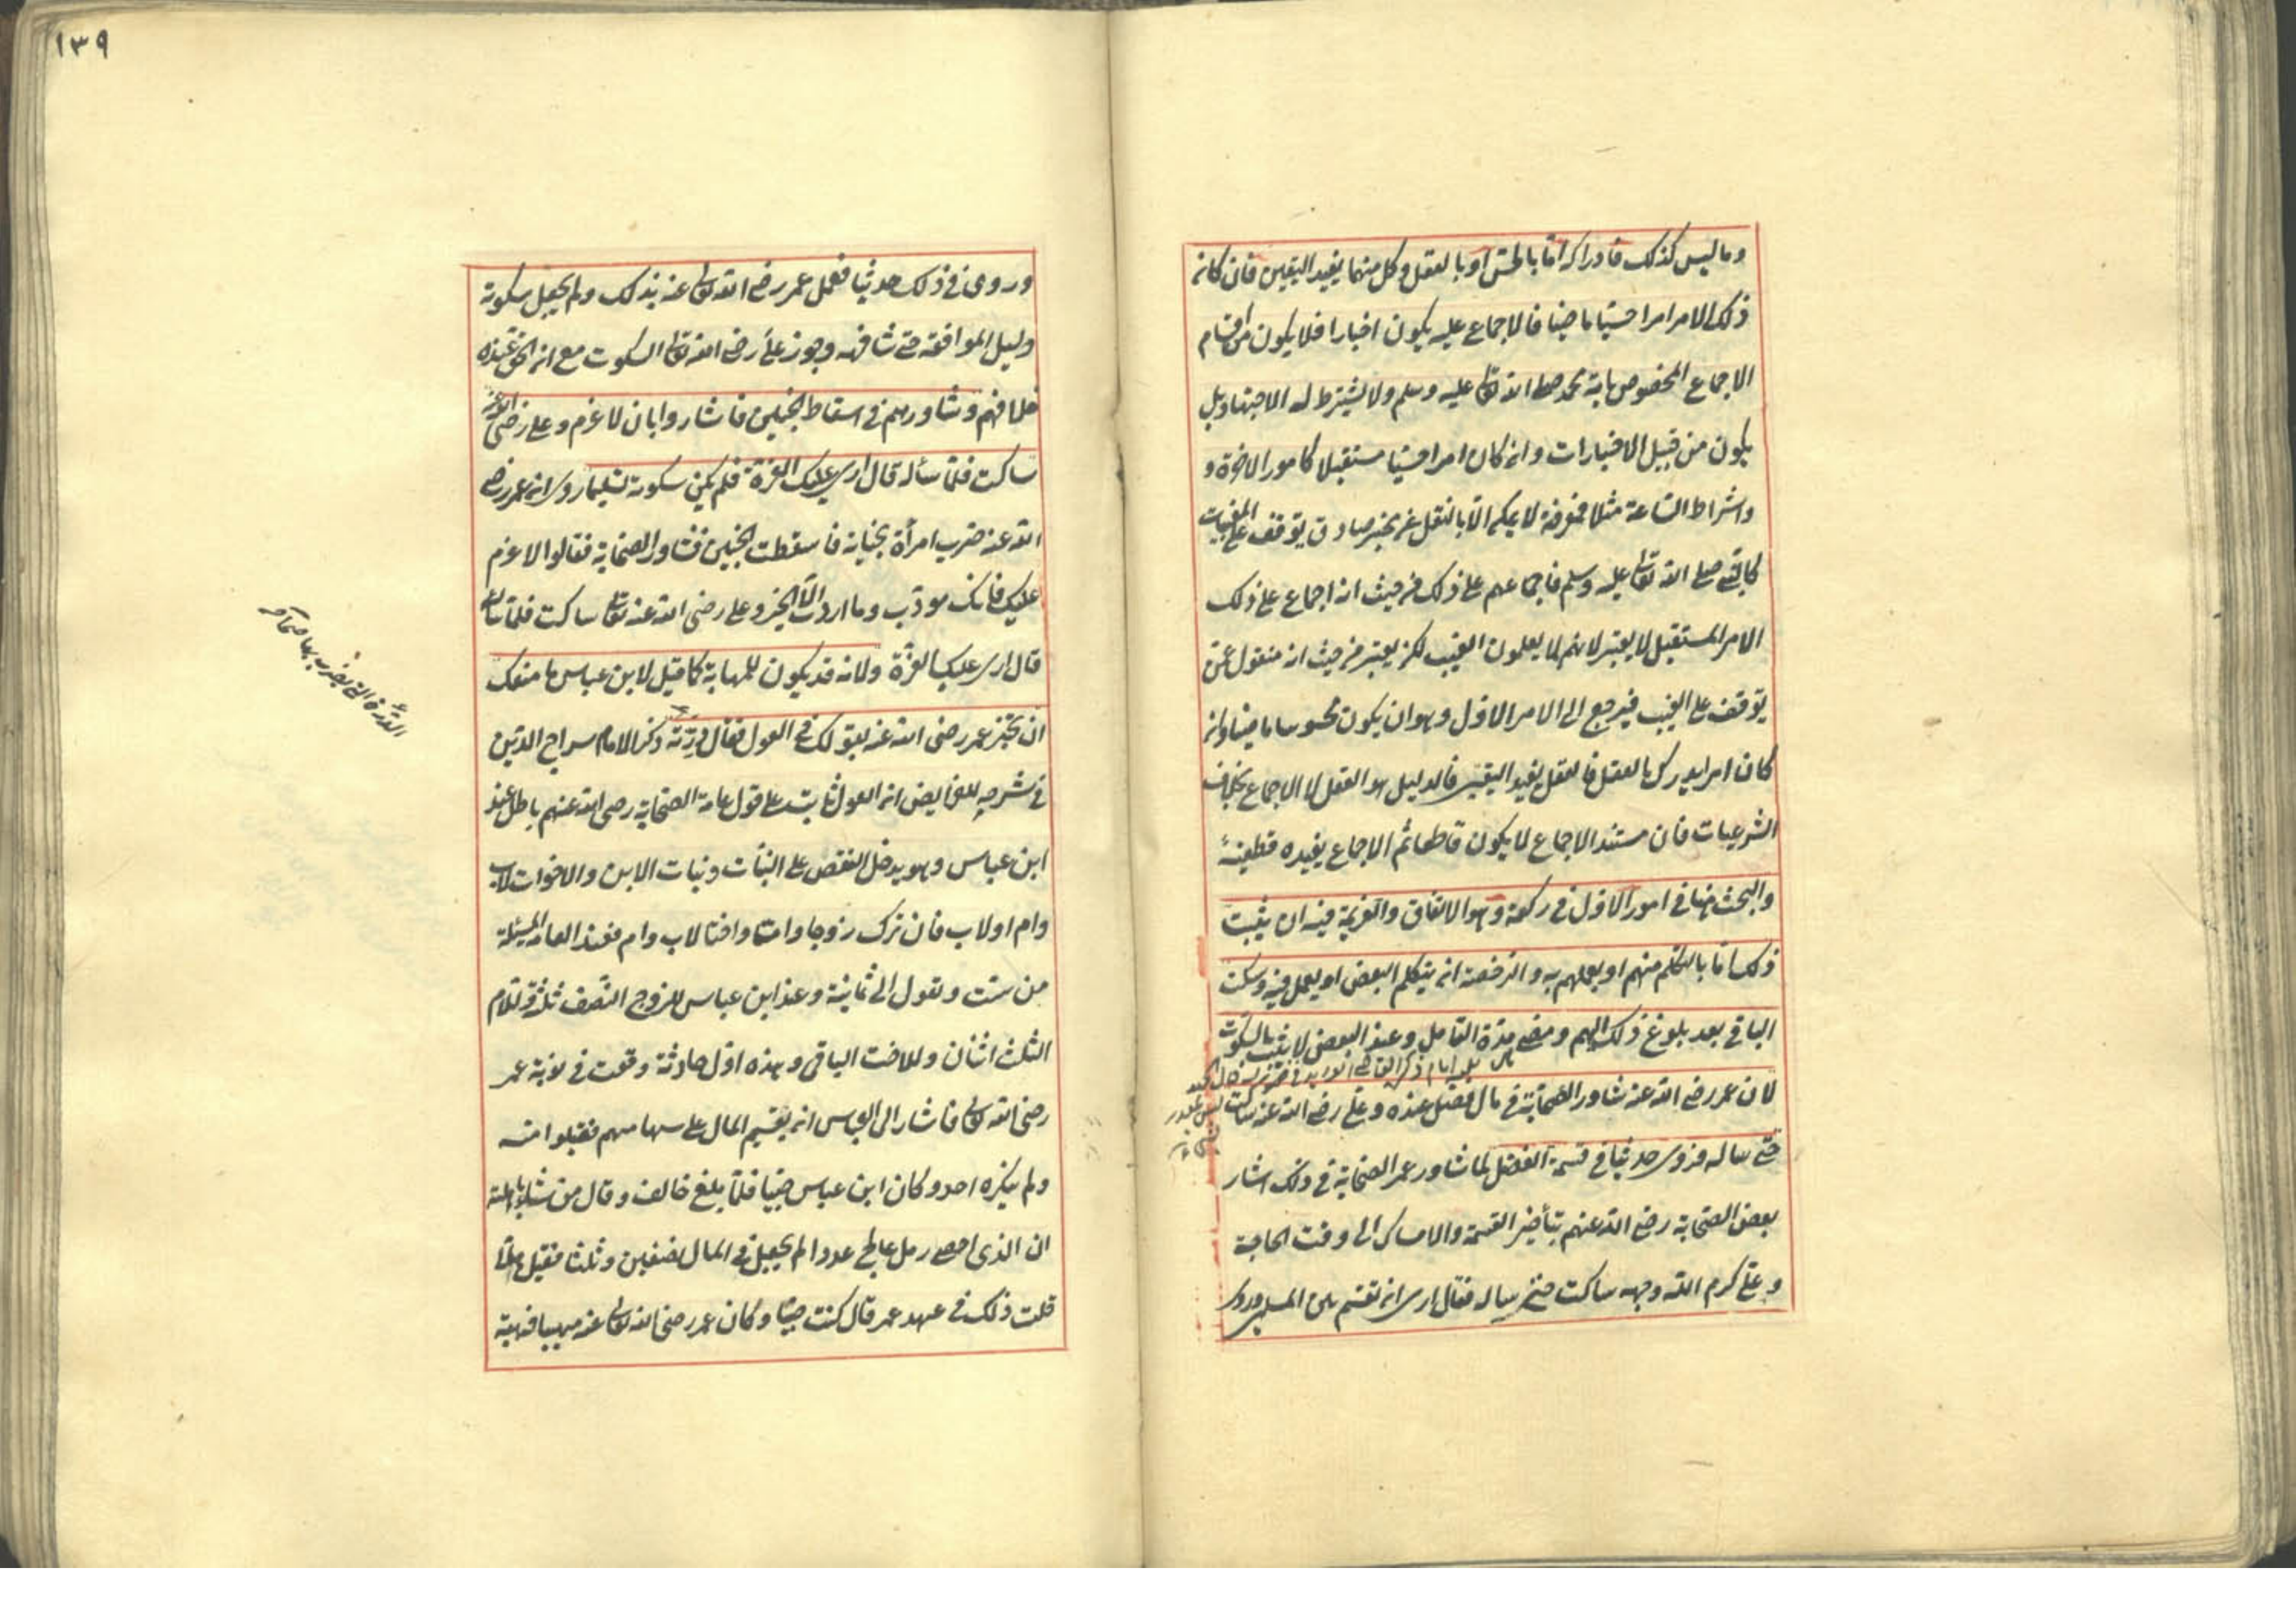 وما ليس كذلك فادراكه اما بالحس او بالعقل وكل منهما يفيد اليقين فان كان
ذلك الامر امرا حسيا ماضيا فالاجماع عليه يكون اخبارا فلا يكون من اقسام
الاجماع المخصوص بامة محمد صلى الله تعالى عليه وسلم ولا يشترط له الاجتهاد بل
يكون من قبيل الاخبارات وان كان امرا حسيا مستقبلا كامور الاخرة و
واشراط الساعة مثلا فمعرفته لا يمكن الا بالنقل عن مخبر صادق يوقف على المغيبات
كالنبي صلى الله تعالى عليه وسلم فاجماعهم على ذلك من حيث انه اجماع على ذلك
الامر المستقبل لا يعتبر لانهم لا يعلمون الغيب لكن يعتبر من حيث انه منقول عمن
يوقف على الغيب فيرجع الى الامر الاول وهو ان يكون محسوسا ماضيا وان
كان امرا يدرك بالعقل فالعقل يفيد اليقين فالدليل هو العقل لا الاجماع بخلاف
الشرعيات فان مستند الاجماع لا يكون قاطعا ثم الاجماع يفيده قطعية
والبحث هنا في امور الاول في ركنه وهو الاتفاق والعزيمة فيه ان يثبت
ذلك اما بالتكلم منهم او بعملهم به والرخصة ان يتكلم البعض او يعمل فيه وسكت
الباقي بعد بلوغ ذلك اليهم ومضي مدة التأمل وعند البعض لا يثبت بالسكوت
لان عمر رضي الله عنه شاور الصحابة في مال فضل عنده وعلي رضي الله عنه ساكت
حتى ساله فروى حديثا في قسمة الفضل لما شاور عمر الصحابة في ذلك اشار
بعض الصحابة رضي الله عنهم بتأخير القسمة والامساك الى وقت الحاجة
وعلي كرم الله وجهه ساكت حتى ساله فقال ارى ان تقسم بين المسلمين وروى
١٣٩
وروى في ذلك حديثا فعمل عمر رضي الله تعالى عنه بذلك ولم يجعل سكوته
دليل الموافقة حتى شافهه وجوز علي رضي الله تعالى السكوت مع ان الحق عنده
خلافهم وشاورهم في اسقاط الجنين فاشاروا بان لا غرم وعلي رضي الله عنه
ساكت فلما سأله قال ارى عليك الغرة فلم يكن سكوته تسليما روى ان عمر رضي
الله عنه ضرب امرأة بجناية فاسقطت الجنين فشاور الصحابة فقالوا لا غرم
عليك فانك مؤدب وما اردت الا الخير وعلي رضي الله عنه تعالى ساكت فلما ساله
قال ارى عليك الغرة ولانه قد يكون للمهابة كما قيل لابن عباس ما منعك
ان تخبر عمر رضي الله عنه بقولك في العول فقال درته ذكر الامام سراج الدين
في شرحه للفرايض ان العول ثابت على قول عامة الصحابة رضي الله عنهم باطل عند
ابن عباس وهو يدخل النقص على البنات وبنات الابن والاخوات لاب
وام او لاب فان ترك زوجا واما واختا لاب وام فعند العامة المسئلة
من ستة وتعول الى ثمانية وعند ابن عباس للزوج النصف ثلثة وللام
الثلث اثنان وللاخت الباقي وهذه اول حادثة وقعت في نوبة عمر
رضي الله تعالى فاشار الى العباس ان يقسم المال على سهامهم فقبلوا منه
ولم ينكره احد وكان ابن عباس صبيا فلما بلغ خالف وقال من شاء باهلته
ان الذي احصى رمل عالج عددا لم يجعل في المال نصفين وثلثا فقيل هلا
قلت ذلك في عهد عمر قال كنت صبيا وكان عمر رضي الله تعالى عنه مهيبا فهبته
الدرة التي يضرب بها